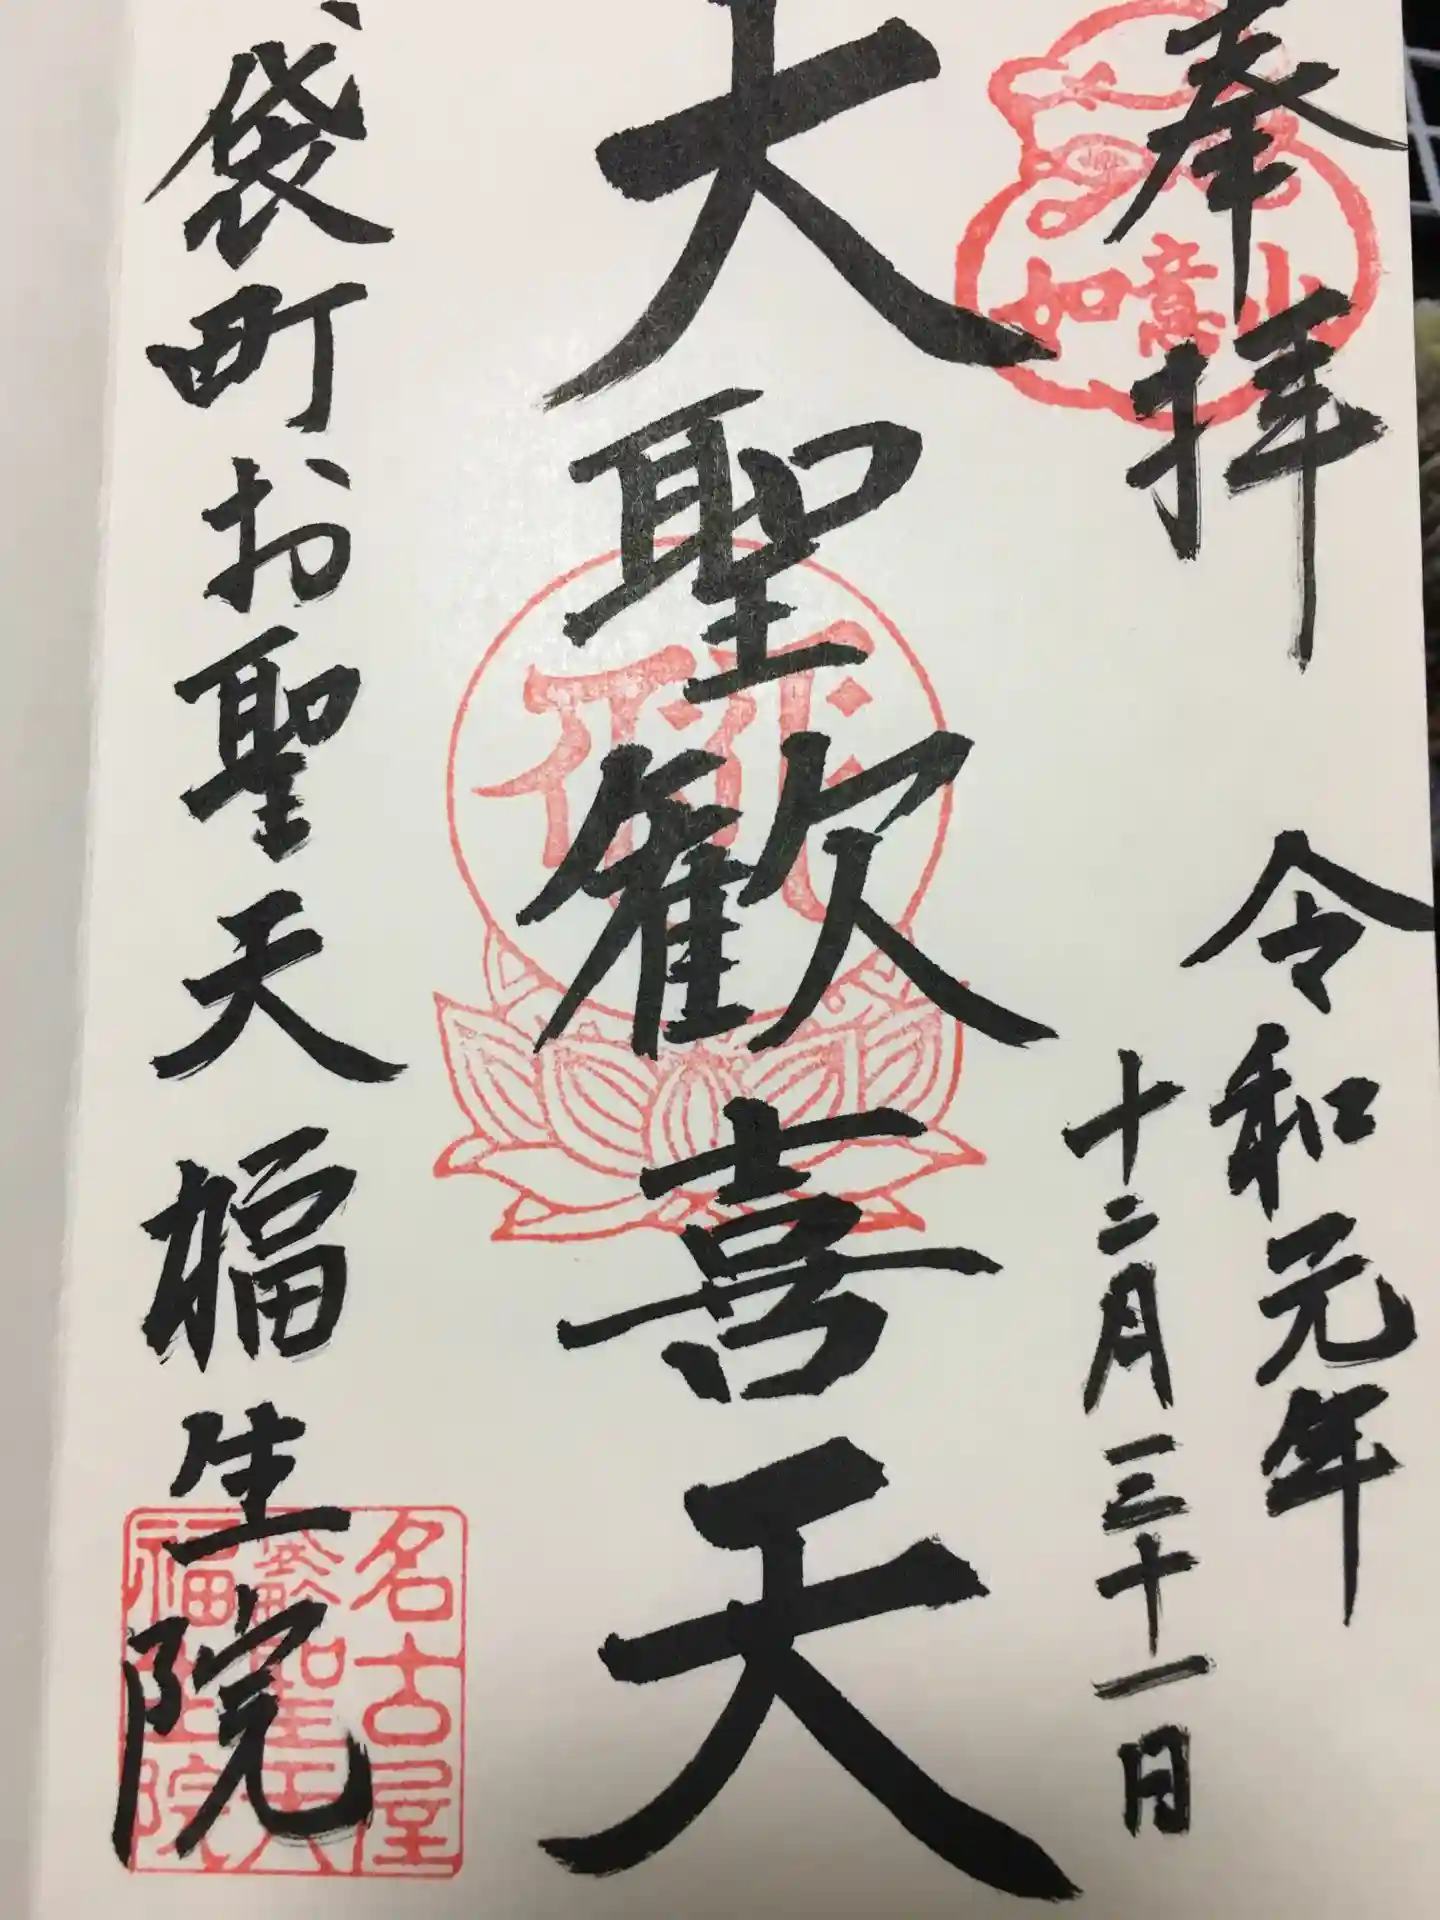 奉拝
如意山
令和元年
十二月三十一日
大聖歓喜天
袋町お聖天 福生院
名古屋
聖天
福生院